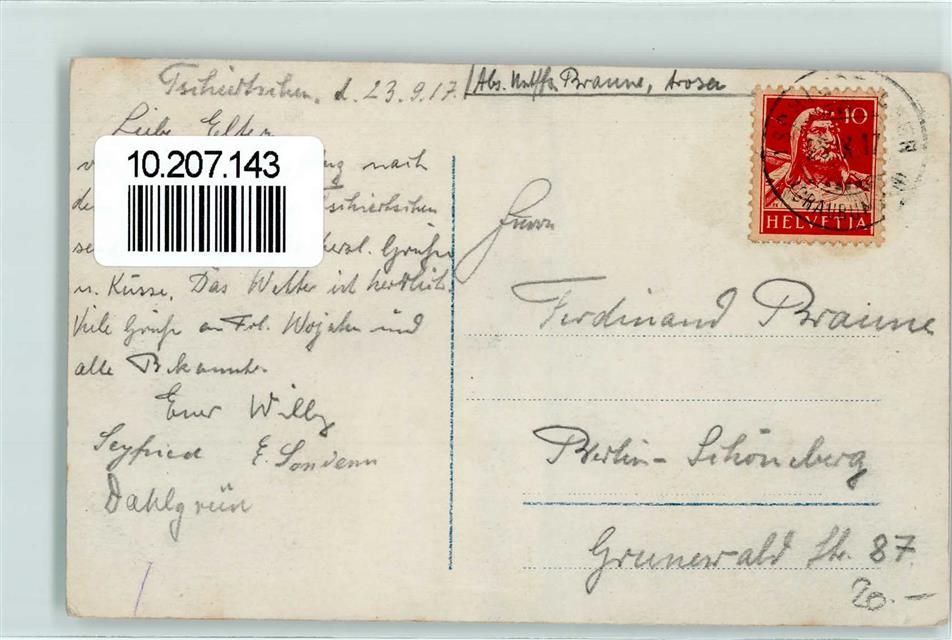 Tschiertschen, d. 23.9.17. / Abs. Braune, Arosa
Liebe Eltern
10.207.143
nach
Tschiertschen
herzl. Grüße
u. Küsse. Das Wetter ist herrlich.
Viele Grüße an Frl. Wojahn und
alle Bekannte.
Euer Willy
Seyfried E. Sondenn
Dahlgrün
10
HELVETIA
Herrn
Ferdinand Braune
Berlin-Schöneberg
Grunewald Str. 87.
20.-